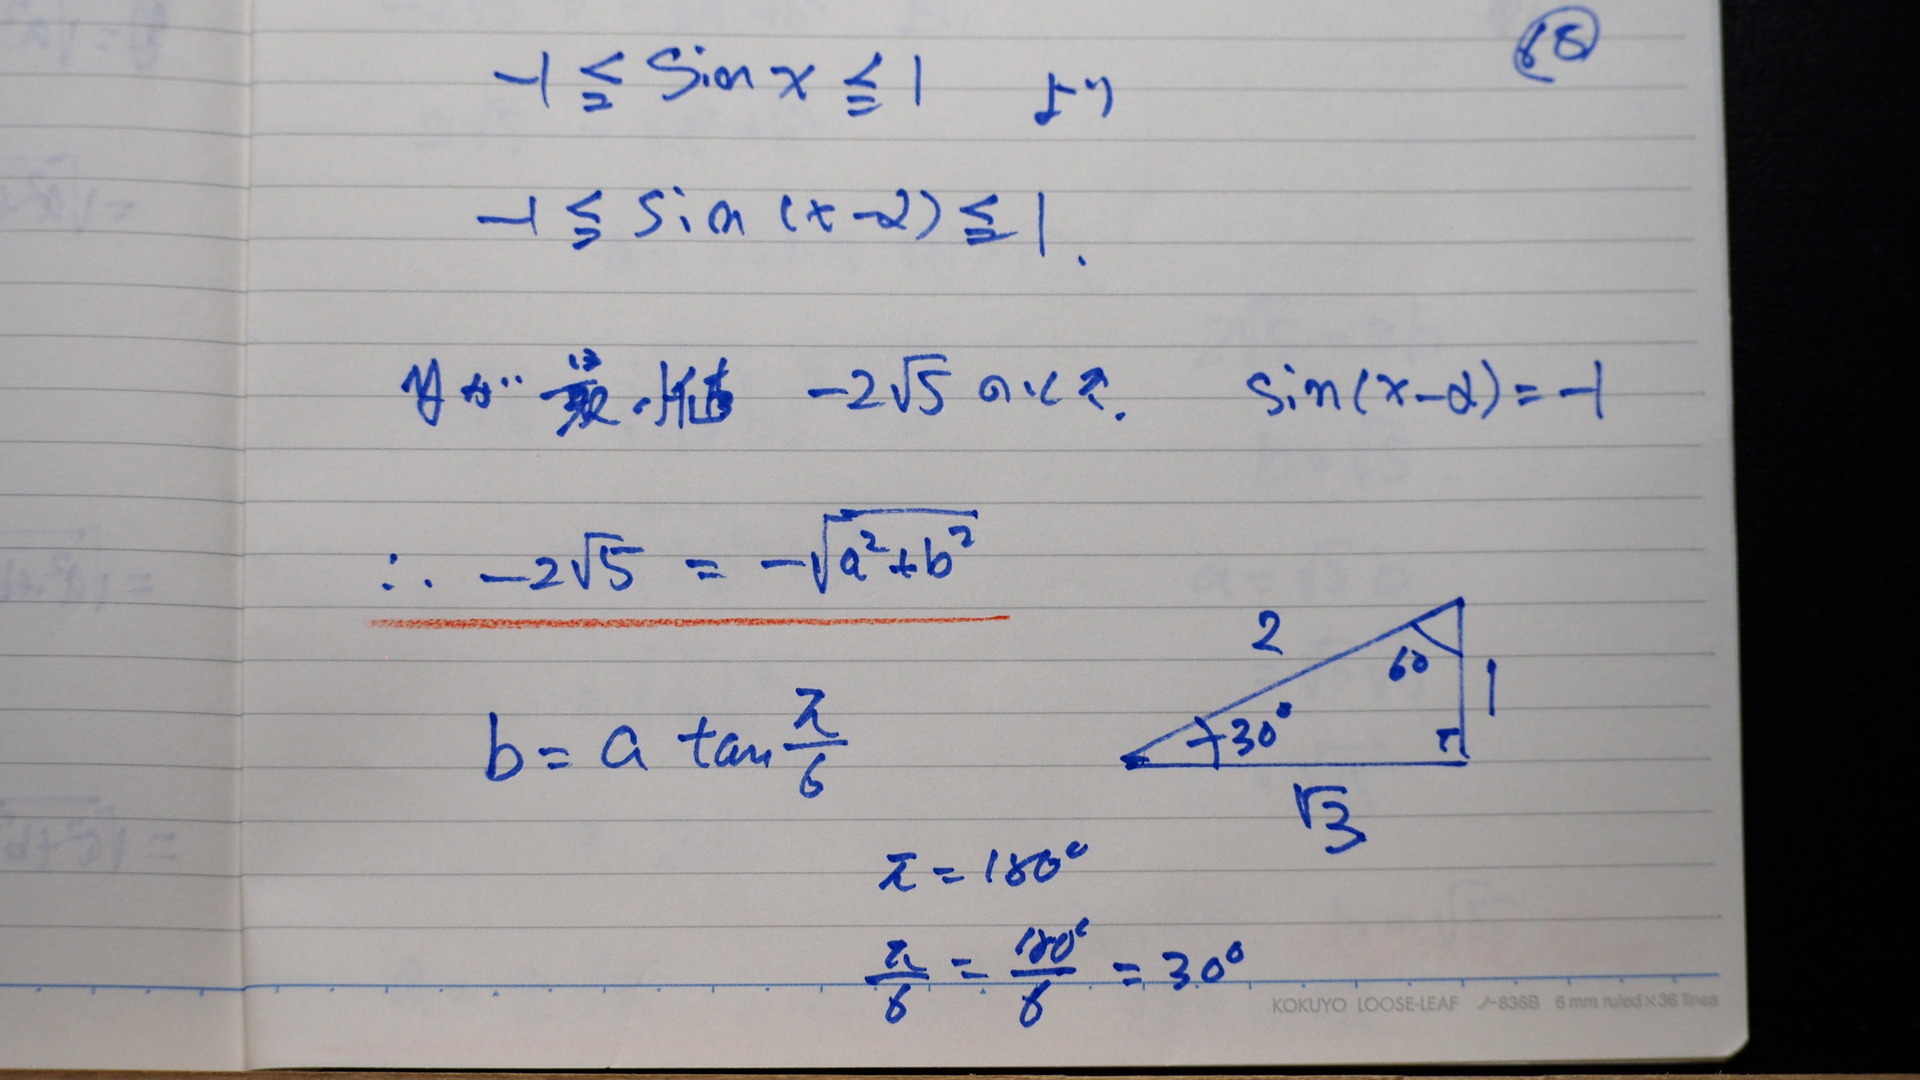 68
-1 ≦ sin x ≦ 1 より
-1 ≦ sin (x-α) ≦ 1.
yが 最小値 -2√5 のとき. sin(x-α) = -1
∴ -2√5 = -√(a²+b²)
b = a tan π/6
2
60
1
30°
√3
π = 180°
π/6 = 180°/6 = 30°
KOKUYO LOOSE-LEAF ノ-836B 6 mm ruled×36 lines